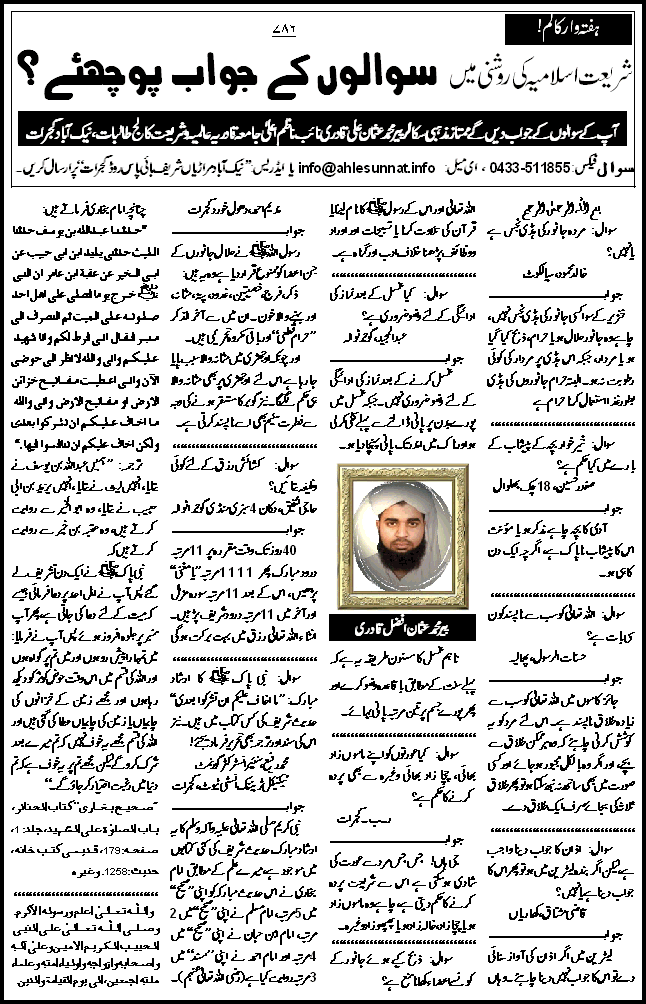 ۷۸۶
ہفتہ وار کالم!
شریعت اسلامیہ کی روشنی میں سوالوں کے جواب پوچھئے؟
آپ کے سوالوں کے جواب دیں گے ممتاز مذہبی سکالر پیر محمد عثمان علی قادری نائب ناظم اعلیٰ جامعہ قادریہ عالمیہ و شریعت کالج طالبات، نیک آباد گجرات
سوال فیکس: 0433-511855 ، ای میل: info@ahlesunnat.info یا ایڈریس: ”نیک آباد مراڑیاں شریف بائی پاس روڈ گجرات“ پر ارسال کریں۔
بسم اللہ الرحمن الرحیم
سوال: مردہ جانور کی ہڈی نجس ہے
یا نہیں؟
خالد محمود سیالکوٹ
جواب
خنزیر کے سوا کسی جانور کی ہڈی نجس نہیں،
چاہے وہ جانور حلال ہو یا حرام، ذبح کیا گیا
ہو یا مردار، جبکہ اس ہڈی پر مردار کی کوئی
رطوبت نہ ہو۔ البتہ حرام جانوروں کی ہڈی
بطور غذا استعمال کرنا حرام ہے
سوال: شیر خوار بچہ کے پیشاب کے
بارے میں کیا حکم ہے؟
صفدر حسین، 18 چک بھلوال
جواب
آدمی کا بچہ چاہے مذکر ہو یا مؤنث
اس کا پیشاب ناپاک ہے اگرچہ ایک دن
کا ہی ہو۔
سوال: اللہ تعالیٰ کو سب سے ناپسند کون
سی بات ہے؟
حسنات الرسول، پھالیہ
جواب
جائز کاموں میں اللہ تعالیٰ کو سب سے
زیادہ طلاق ناپسند ہے۔ اس لئے مرد کو یہ
کوشش کرنی چاہئے کہ وہ ہر ممکن طلاق سے
بچے اور اگر وہ بالکل مجبور ہو جائے اور کسی
صورت میں بھی ساتھ نبھ سکتا ہو تو پھر طلاق
ثلاثہ کی بجائے صرف ایک طلاق دے۔
سوال: اذان کا جواب دینا واجب
ہے لیکن اگر بندہ لیٹرین میں ہو تو پھر اس کا
جواب دینا چاہیے یا نہیں؟
قاضی مشتاق، کھاریاں
جواب
لیٹرین میں اگر اذان کی آواز سنائی
دے تو اس کا جواب نہیں دینا چاہیے۔ وہاں
اللہ تعالیٰ اور اس کے رسول ﷺ کا نام لینا یا
قرآن کی تلاوت کرنا یا تسبیحات اور اوراد
و وظائف پڑھنا خلاف ادب اور گناہ ہے۔
سوال: کیا غسل کے بعد نماز کی
ادائیگی کے لئے وضو ضروری ہے؟
عبدالمجید، گوجرانوالہ
جواب
غسل کرنے کے بعد نماز کی ادائیگی
کے لئے وضو ضروری نہیں۔ جبکہ غسل میں
پورے بدن پر پانی ڈالنے سے پہلے کلی کرلی
ہو اور ناک میں اندر تک پانی پہنچا دیا ہو۔
پیر محمد عثمان افضل قادری
تاہم غسل کا مسنون طریقہ یہ ہے کہ
پہلے سنت کے مطابق باقاعدہ وضو کرے اور
پھر پورے جسم پر تین مرتبہ پانی بہائے۔
سوال: کیا عورتوں کو اپنے ماموں زاد
بھائی، چچا زاد بھائی وغیرہ سے بھی پردہ
کرنے کا حکم ہے؟
ر۔ب۔ گجرات
جواب
جی ہاں! جس جس مرد سے عورت کی
شادی ہو سکتی ہے اس سے شریعت پردہ
کرنے کا حکم دیتی ہے چاہے وہ ماموں زاد
ہو یا چچا زاد، خالہ زاد ہو یا پھوپھو زاد وغیرہ۔
سوال: ذبح کیے ہوئے جانور کے
کونسے اعضاء کھانا منع ہے؟
ندیم احمد دھول خورد گجرات
جواب
رسول اللہ ﷺ نے حلال جانوروں کے
جن اعضا کو ممنوع قرار دیا ہے وہ یہ ہیں:
ذکر، فرج، خصیتین، غدود، پتہ، مثانہ،
اور بہنے والا خون۔ ان میں سے آخر الذکر
”حرام قطعی“ اور باقی مکروہ تحریمی ہیں۔
اور چونکہ اوجھڑی میں مثانہ والا سبب پایا
جا رہا ہے اس لئے اوجھڑی پر بھی مثانہ والا
ہی حکم لگے گا نیز گوبر کا مستقر ہونے کی وجہ
سے فطرت سلیم بھی اسے ناپسند کرتی ہے۔
سوال: کشائش رزق کے لئے کوئی
وظیفہ بتائیں؟
حاجی شفیق، دکان 4 سبزی منڈی گوجرانوالہ
جواب
40 روز تک وقت مقررہ پر 11 مرتبہ
درود مبارک پھر 1111 مرتبہ ”یا مغنی“
پڑھیں، اس کے بعد 11 مرتبہ سورہ مزمل
اور آخر میں 11 مرتبہ درود شریف پڑھیں۔
انشاء اللہ تعالیٰ رزق میں بہت برکت ہوگی
سوال: نبی پاک ﷺ کا ارشاد
مبارک: ”ما اخاف علیکم ان تشرکوا بعدی“
حدیث شریف کی کس کتاب میں ہے۔ نیز
اس کی سند اور ترجمہ بھی تحریر فرما دیجئے!
محمد رفیع، سینئر انسٹرکٹر گورنمنٹ
ٹیکنیکل ٹریننگ انسٹی ٹیوٹ، گجرات
جواب
نبی کریم صلی اللہ تعالیٰ علیہ وآلہ وسلم کا یہ
ارشاد مبارک حدیث شریف کی کئی کتابوں
میں موجود ہے، میرے علم کے مطابق امام
بخاری نے اس حدیث مبارکہ کو اپنی ”صحیح“
میں 5 مرتبہ، امام مسلم نے اپنی ”صحیح“ میں 2
مرتبہ، امام ابن حبان نے اپنی ”صحیح“ میں
3 مرتبہ اور امام احمد نے اپنی ”مسند“ میں
4 مرتبہ روایت کیا ہے (رضی اللہ تعالیٰ عنہم)۔
چنانچہ امام بخاری فرماتے ہیں:
”حدثنا عبدالله بن يوسف حدثنا
الليث حدثني يزيد ابن ابي حبيب عن
ابي الخير عن عقبة ابن عامر ان النبي
ﷺ خرج يوما فصلى على اهل احد
صلوته على الميت ثم انصرف الى
منبر فقال اني فرط لكم وانا شهيد
عليكم واني والله لانظر الى حوضي
الآن واني اعطيت مفاتيح خزائن
الارض او مفاتيح الارض واني والله
ما اخاف عليكم ان تشركوا بعدي
ولكن اخاف عليكم ان تنافسوا فيها.“
ترجمہ: ”ہمیں عبداللہ بن یوسف نے
بتایا، انہیں لیث نے بتایا، انہیں یزید بن ابی
حبیب نے بتایا، وہ ابو الخیر سے روایت
کرتے ہیں، وہ عقبہ بن عامر سے روایت
کرتے ہیں کہ
نبی پاک ﷺ نے ایک دن تشریف لے
گئے پس آپ نے اہل احد پر دعا فرمائی جیسے
کہ میت کے لئے دعا کی جاتی ہے، پھر آپ
منبر پر جلوہ افروز ہوئے پس آپ نے فرمایا:
میں تمہارا پیش رو ہوں اور میں تم پر گواہ ہوں
اور اللہ کی قسم میں اس وقت حوض کوثر کو دیکھ
رہا ہوں اور مجھے زمین کے خزانوں کی
چابیاں یا زمین کی چابیاں عطا کی گئی ہیں اور
اللہ کی قسم مجھے یہ خوف نہیں کہ تم میرے بعد
شرک کرو گے لیکن مجھے تم پر یہ خوف ہے کہ تم
دنیا میں رغبت اختیار کر جاؤ گے۔“
”صحیح بخاری“ کتاب الجنائز،
باب الصلوٰۃ علی الشہید، جلد: 1،
صفحہ: 179، قدیمی کتب خانہ،
حدیث: 1258. وغیرہ
واللہ تعالیٰ اعلم ورسولہ الاکرم.
وصلی اللہ تعالیٰ علی النبی
الحبیب الکریم الامین وعلی آلہ
واصحابہ وازواجہ واولیاء امتہ وعلماء
ملتہ اجمعین الی یوم القیامۃ والدین